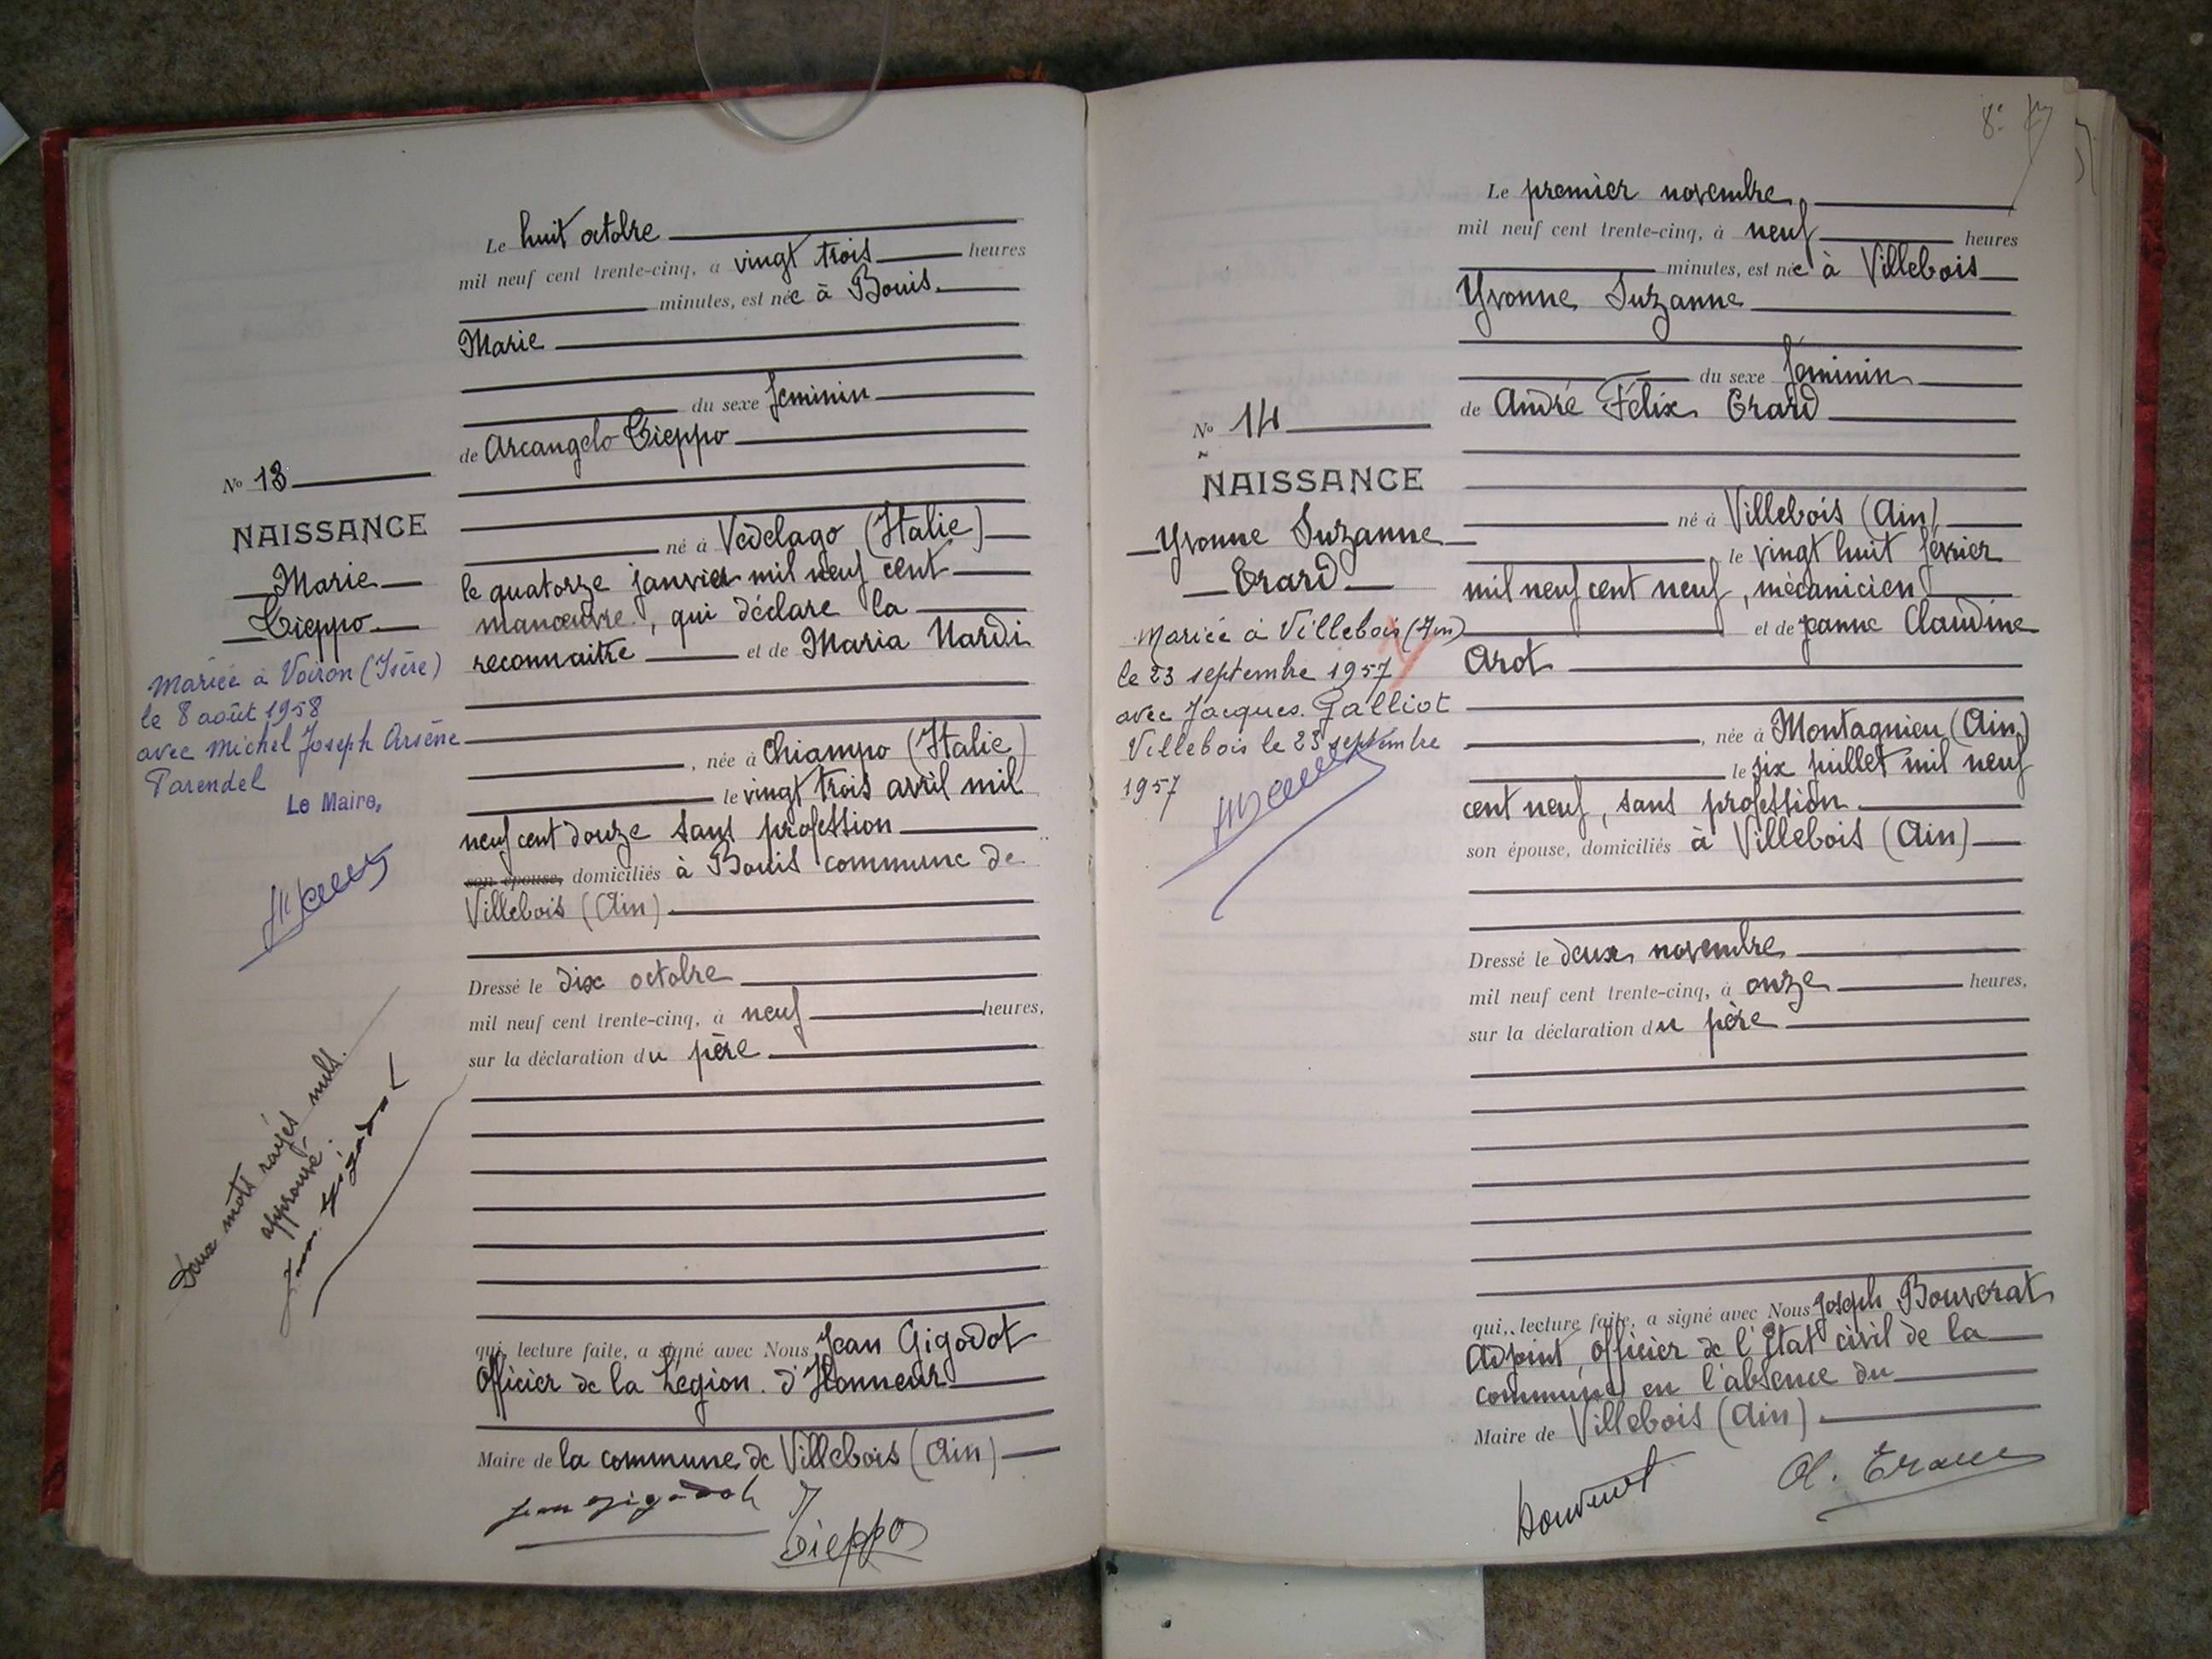 Le huit octobre
mil neuf cent trente-cinq, à vingt trois heures
minutes, est née à Bouis.
Marie
du sexe féminin
de Arcangelo Cieppo
né à Vedelago (Italie)
le quatorze janvier mil neuf cent
manœuvre, qui déclare la
reconnaitre et de Maria Nardi
, née à Chiampo (Italie)
le vingt trois avril mil
neuf cent douze sans profession
son épouse, domiciliés à Bouis commune de
Villebois (Ain)
Dressé le dix octobre
mil neuf cent trente-cinq, à neuf heures,
sur la déclaration du père
qui, lecture faite, a signé avec Nous Jean Gigodot
Officier de la Légion d'Honneur
Maire de la commune de Villebois (Ain)
Jean Gigodot
No 13
NAISSANCE
Marie
Cieppo
Mariée à Voiron (Isère)
le 8 août 1958
avec Michel Joseph Arsène
Parendel
Le Maire,
Deux mots rayés nuls.
approuvé.
Jean Gigodot
8e
Le premier novembre
mil neuf cent trente-cinq, à neuf heures
minutes, est née à Villebois
Yvonne Suzanne
du sexe féminin
de André Félix Erard
né à Villebois (Ain)
le vingt huit février
mil neuf cent neuf, mécanicien
et de Jeanne Claudine
Arot
, née à Montagnieu (Ain)
le six juillet mil neuf
cent neuf, sans profession
son épouse, domiciliés à Villebois (Ain)
Dressé le deux novembre
mil neuf cent trente-cinq, à onze heures,
sur la déclaration du père
qui, lecture faite, a signé avec Nous Joseph Bouverat
Adjoint, Officier de l'Etat civil de la
commune en l'absence du
Maire de Villebois (Ain)
Bouverat
A. Erard
No 14
NAISSANCE
Yvonne Suzanne
Erard
Mariée à Villebois (Ain)
le 23 septembre 1957
avec Jacques Galliot
Villebois le 23 septembre
1957